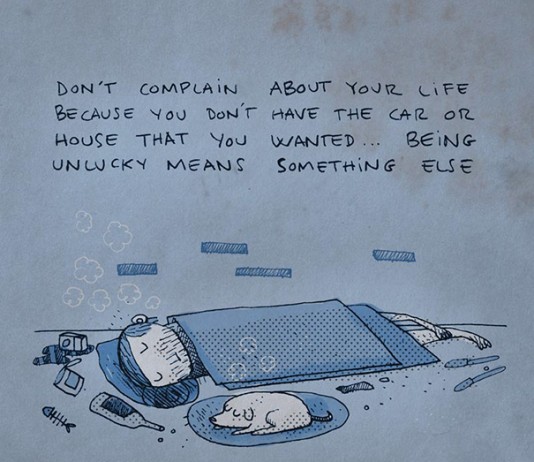 DON'T COMPLAIN ABOUT YOUR LIFE
BECAUSE YOU DON'T HAVE THE CAR OR
HOUSE THAT YOU WANTED... BEING
UNLUCKY MEANS SOMETHING ELSE